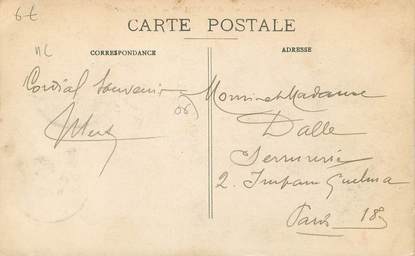 6€
nc
CARTE POSTALE
CORRESPONDANCE
ADRESSE
Cordial Souvenir
06
Monsieur et Madame
Dalle
Serrurerie
2. Impasse Guelma
Paris 18e